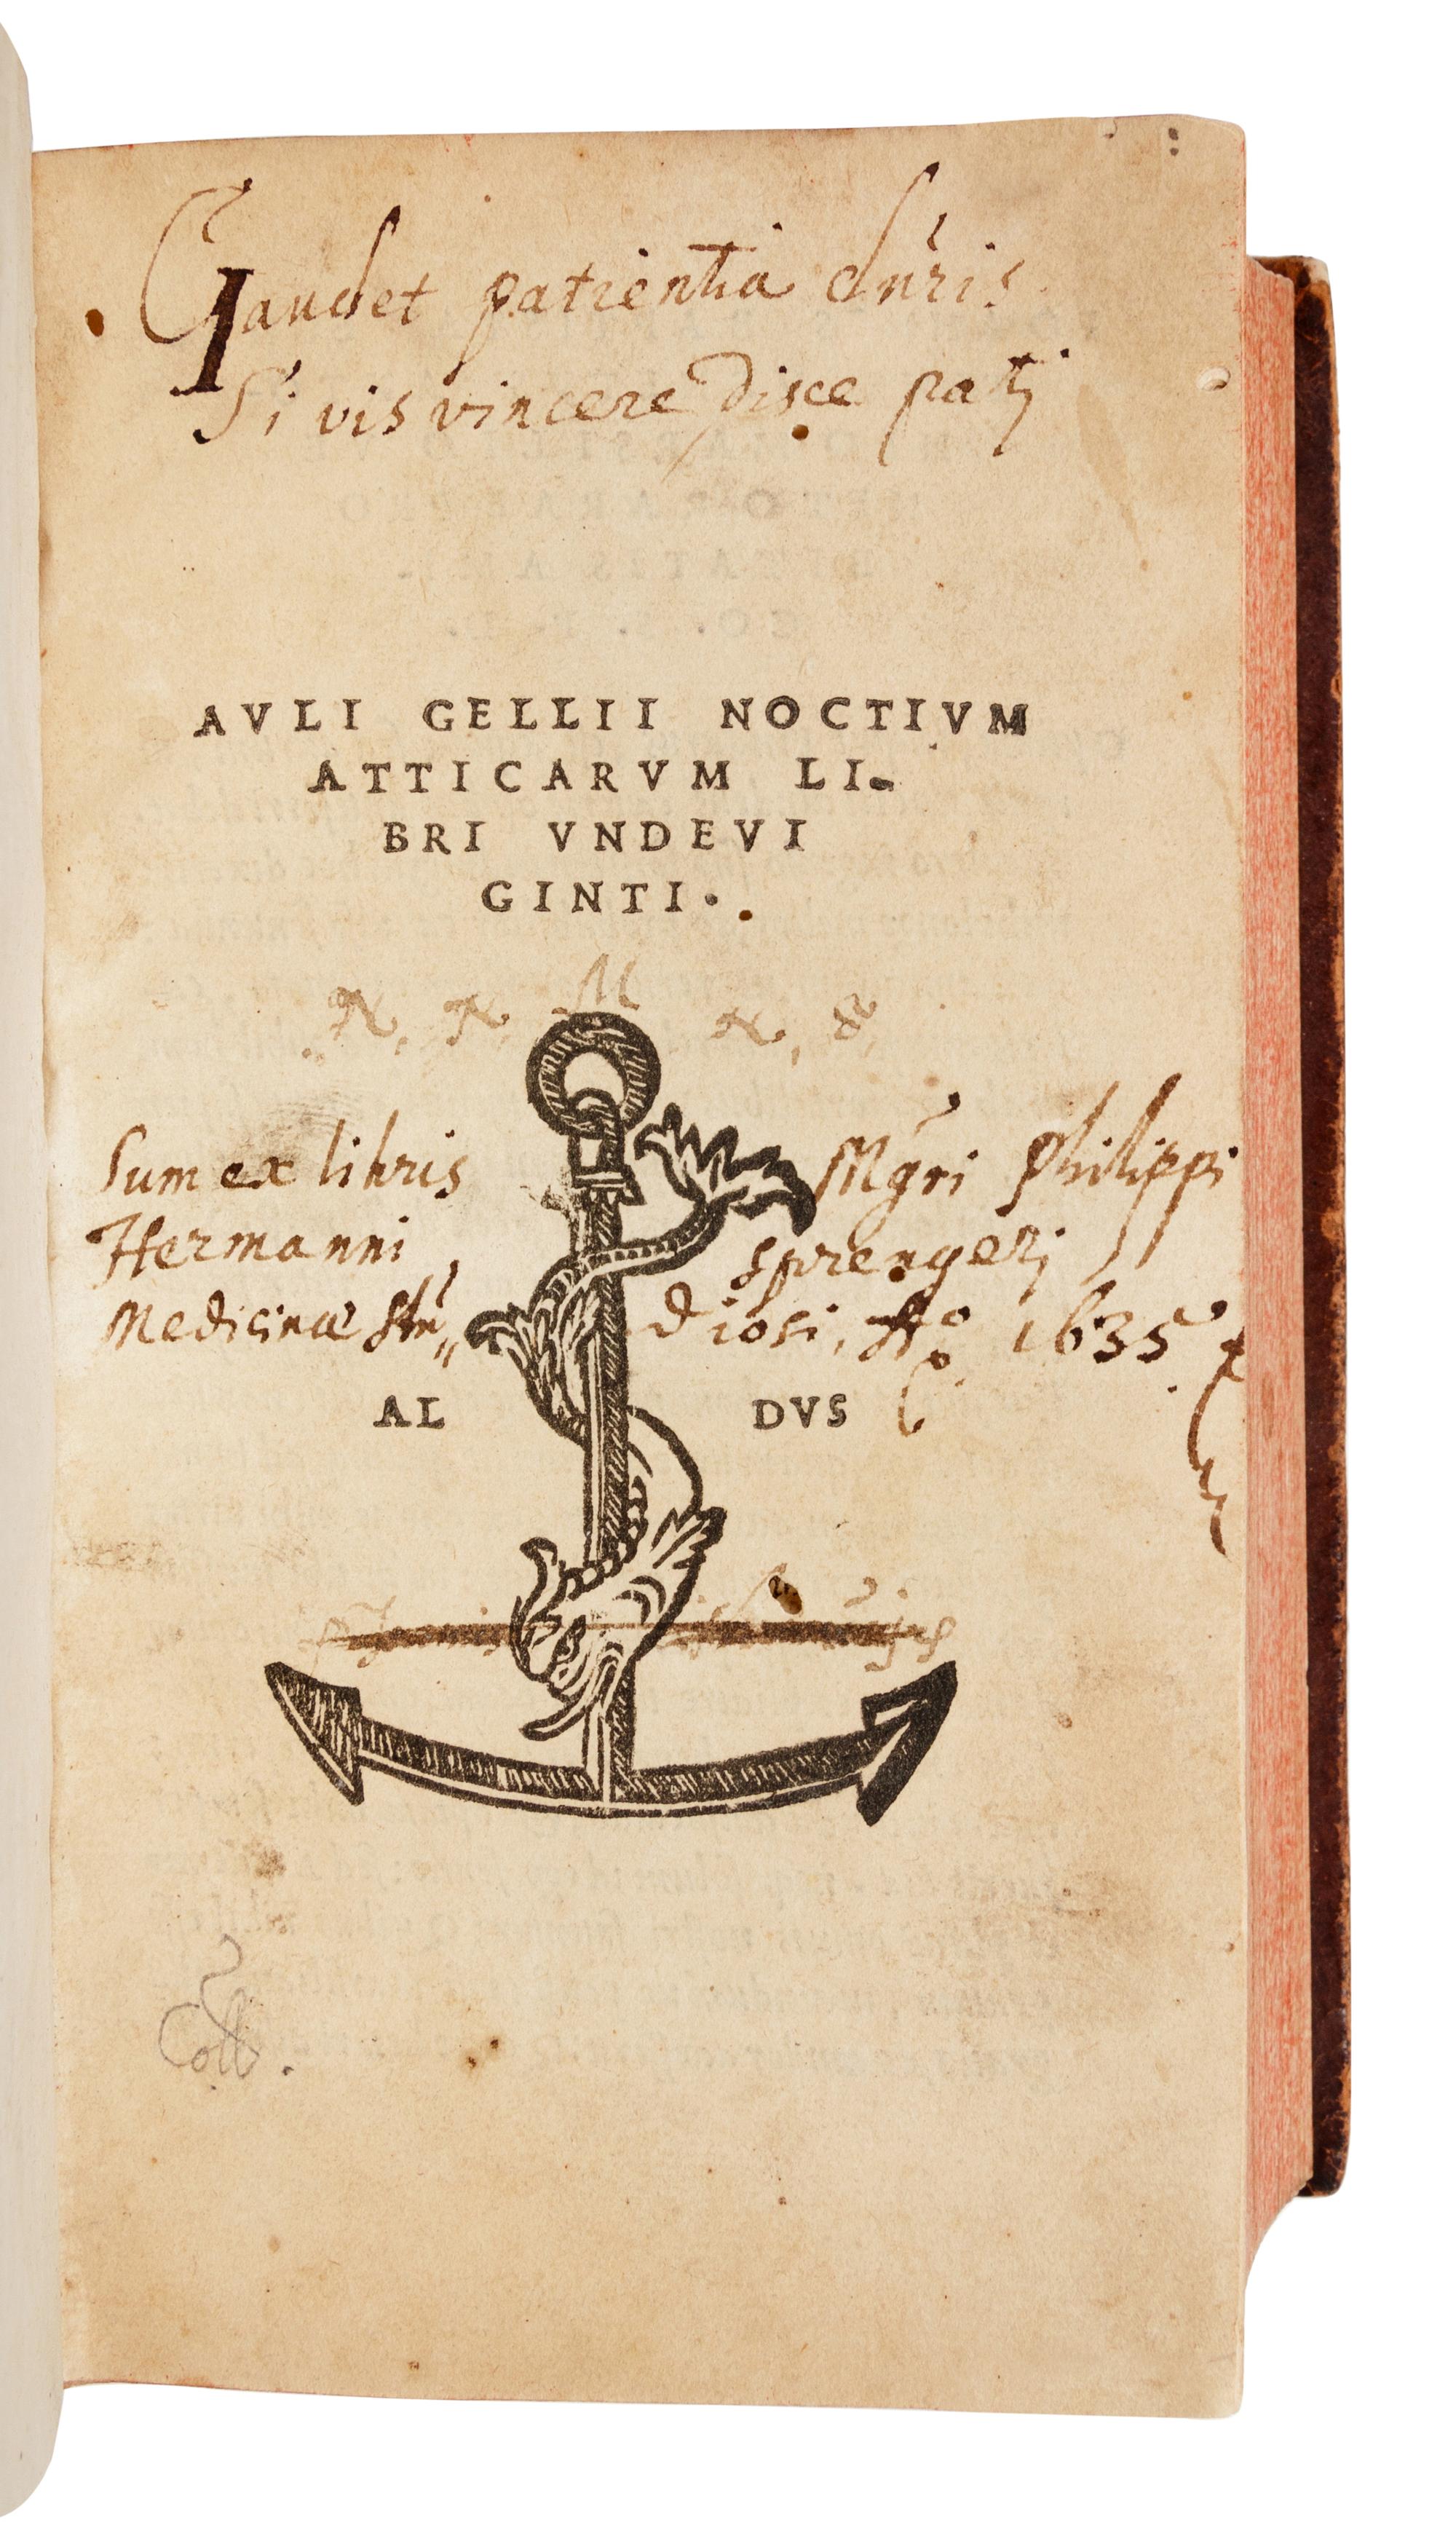 Gaudet patientia duris
Si vis vincere Disce patj
AVLI GELLII NOCTIVM
ATTICARVM LI-
BRI VNDEVI
GINTI.
N. N. M N. S.
Sum ex libris Mgri Philippi
Hermanni, Sprengerj
Medicinæ stu„ diosi, Ao 1635
AL DVS
Coll.